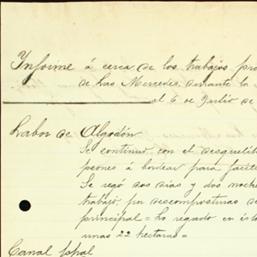 Informe á cerca de los trabajos pro
de las Mercedes, durante la
al 6 de Julio de
Labor de Algodón
Se continuó con el desquelite
peones á bordear para facili
Se regó dos dias y dos noche
trabajo, por descomposturas de
principal = ha regado en éste
unas 22 hectaras =
Canal ppal